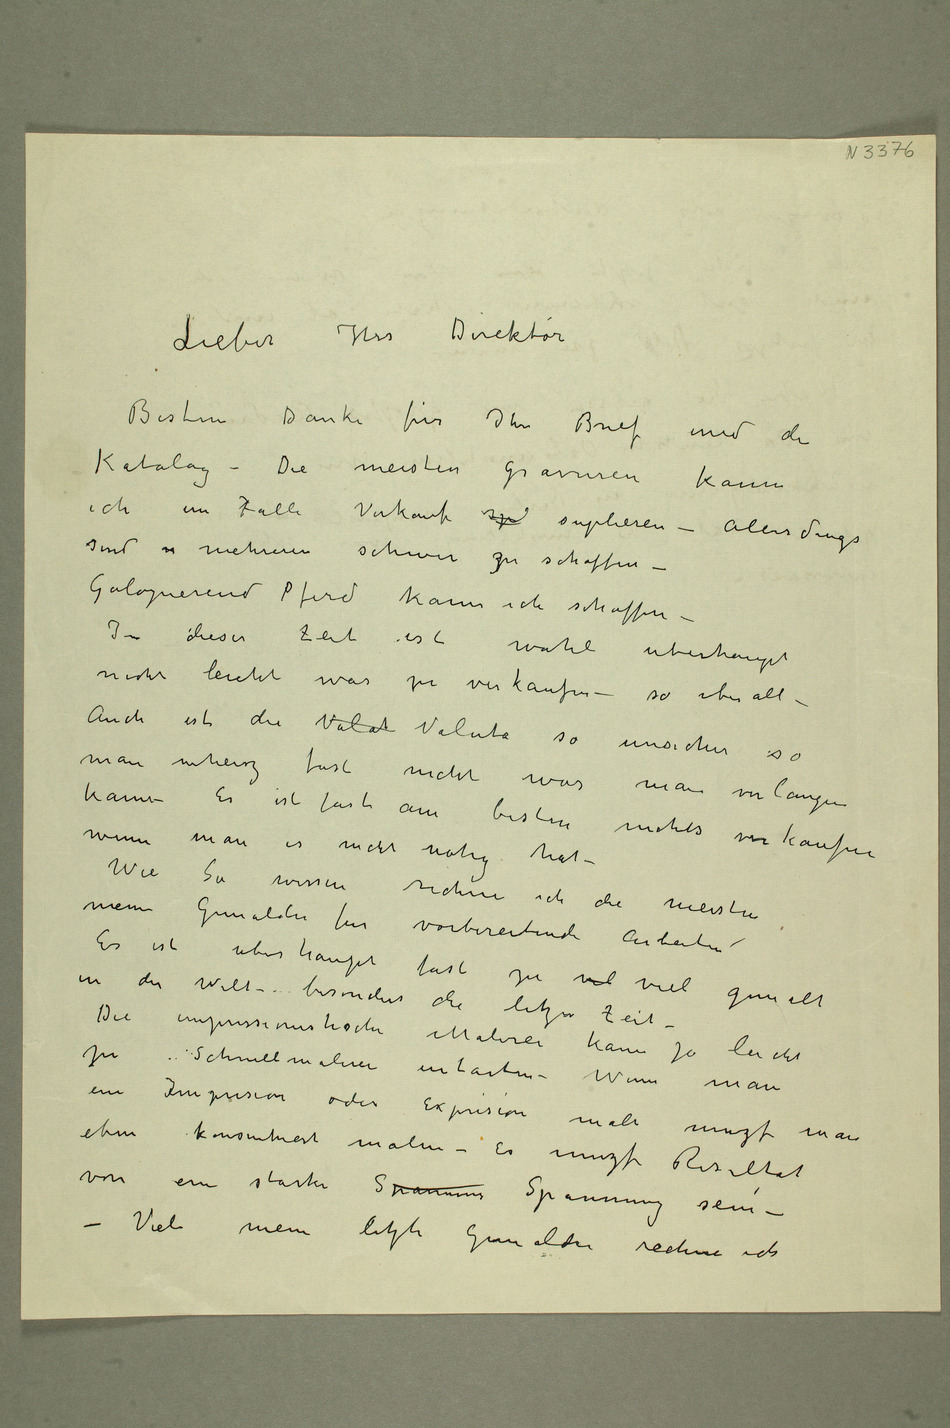 N 3376
Lieber Herr Direktör
Besten Danke für Ihn Brief und de
Katalog – Die meisten Gravuren kann
ich im Falle Verkauf suplieren – Allerdings
sind mehreren schwer zu schaffen –
Galopierend Pferd kann ich schaffen –
In dieser Zeit ist wohl uberhaupt
nicht leicht was zu verkaufen – so uberall –
Auch ist die Valut Valuta so unsicher so
man fast nicht was man verlangen
kann – Es ist fast am besten nichts verkaufen
wenn man es nicht nötig hat –
Wie Sie wissen rechne ich die meisten
meine Gemälder für vorbereitende Arbeiten –
Es ist uberhaupt fast zu viel viel gemalt
in der Welt – besonders die letzte Zeit –
Die impressionistische Malerei kann ja leicht
zu Schnellmalerei entarten – Wenn man
ein Impresion oder Expresion malt muzs man
eben konsentriert malen – Es muzs Resultat
von ein starke Spannung Spannung sein –
– Viele meine letzte Gemälder rechne ich